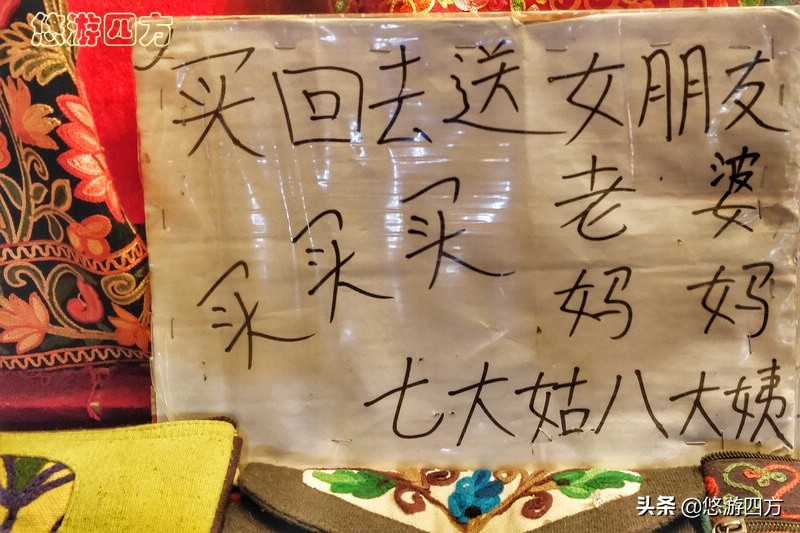 悠游四方
买回去送女朋友
老婆
买买买
妈妈
七大姑八大姨
头条 @悠游四方